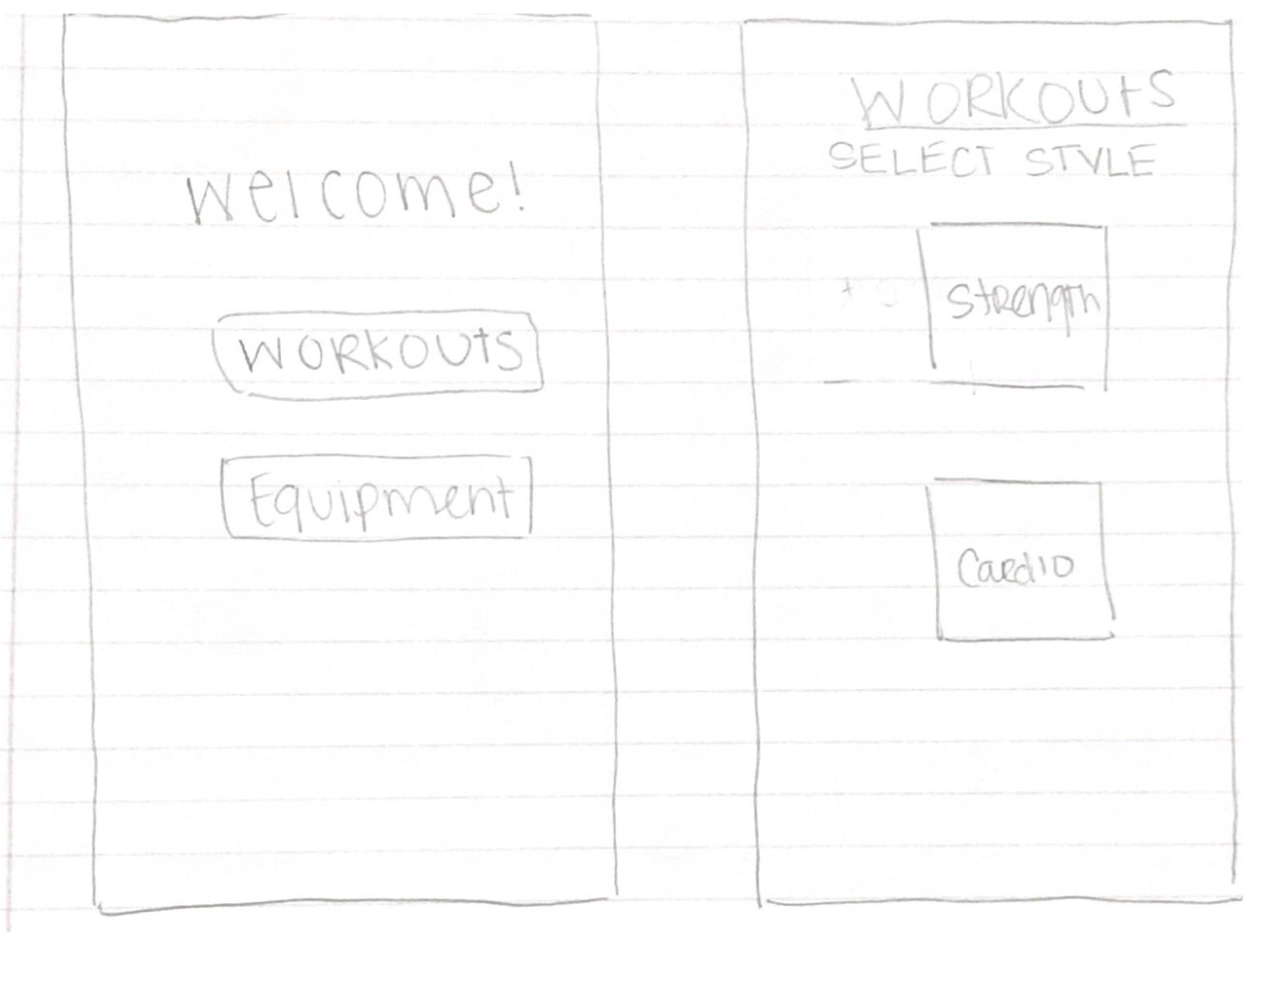 Welcome!
WORKOUtS
Equipment
WORKOUtS
SELECT STYLE
Strength
Cardio